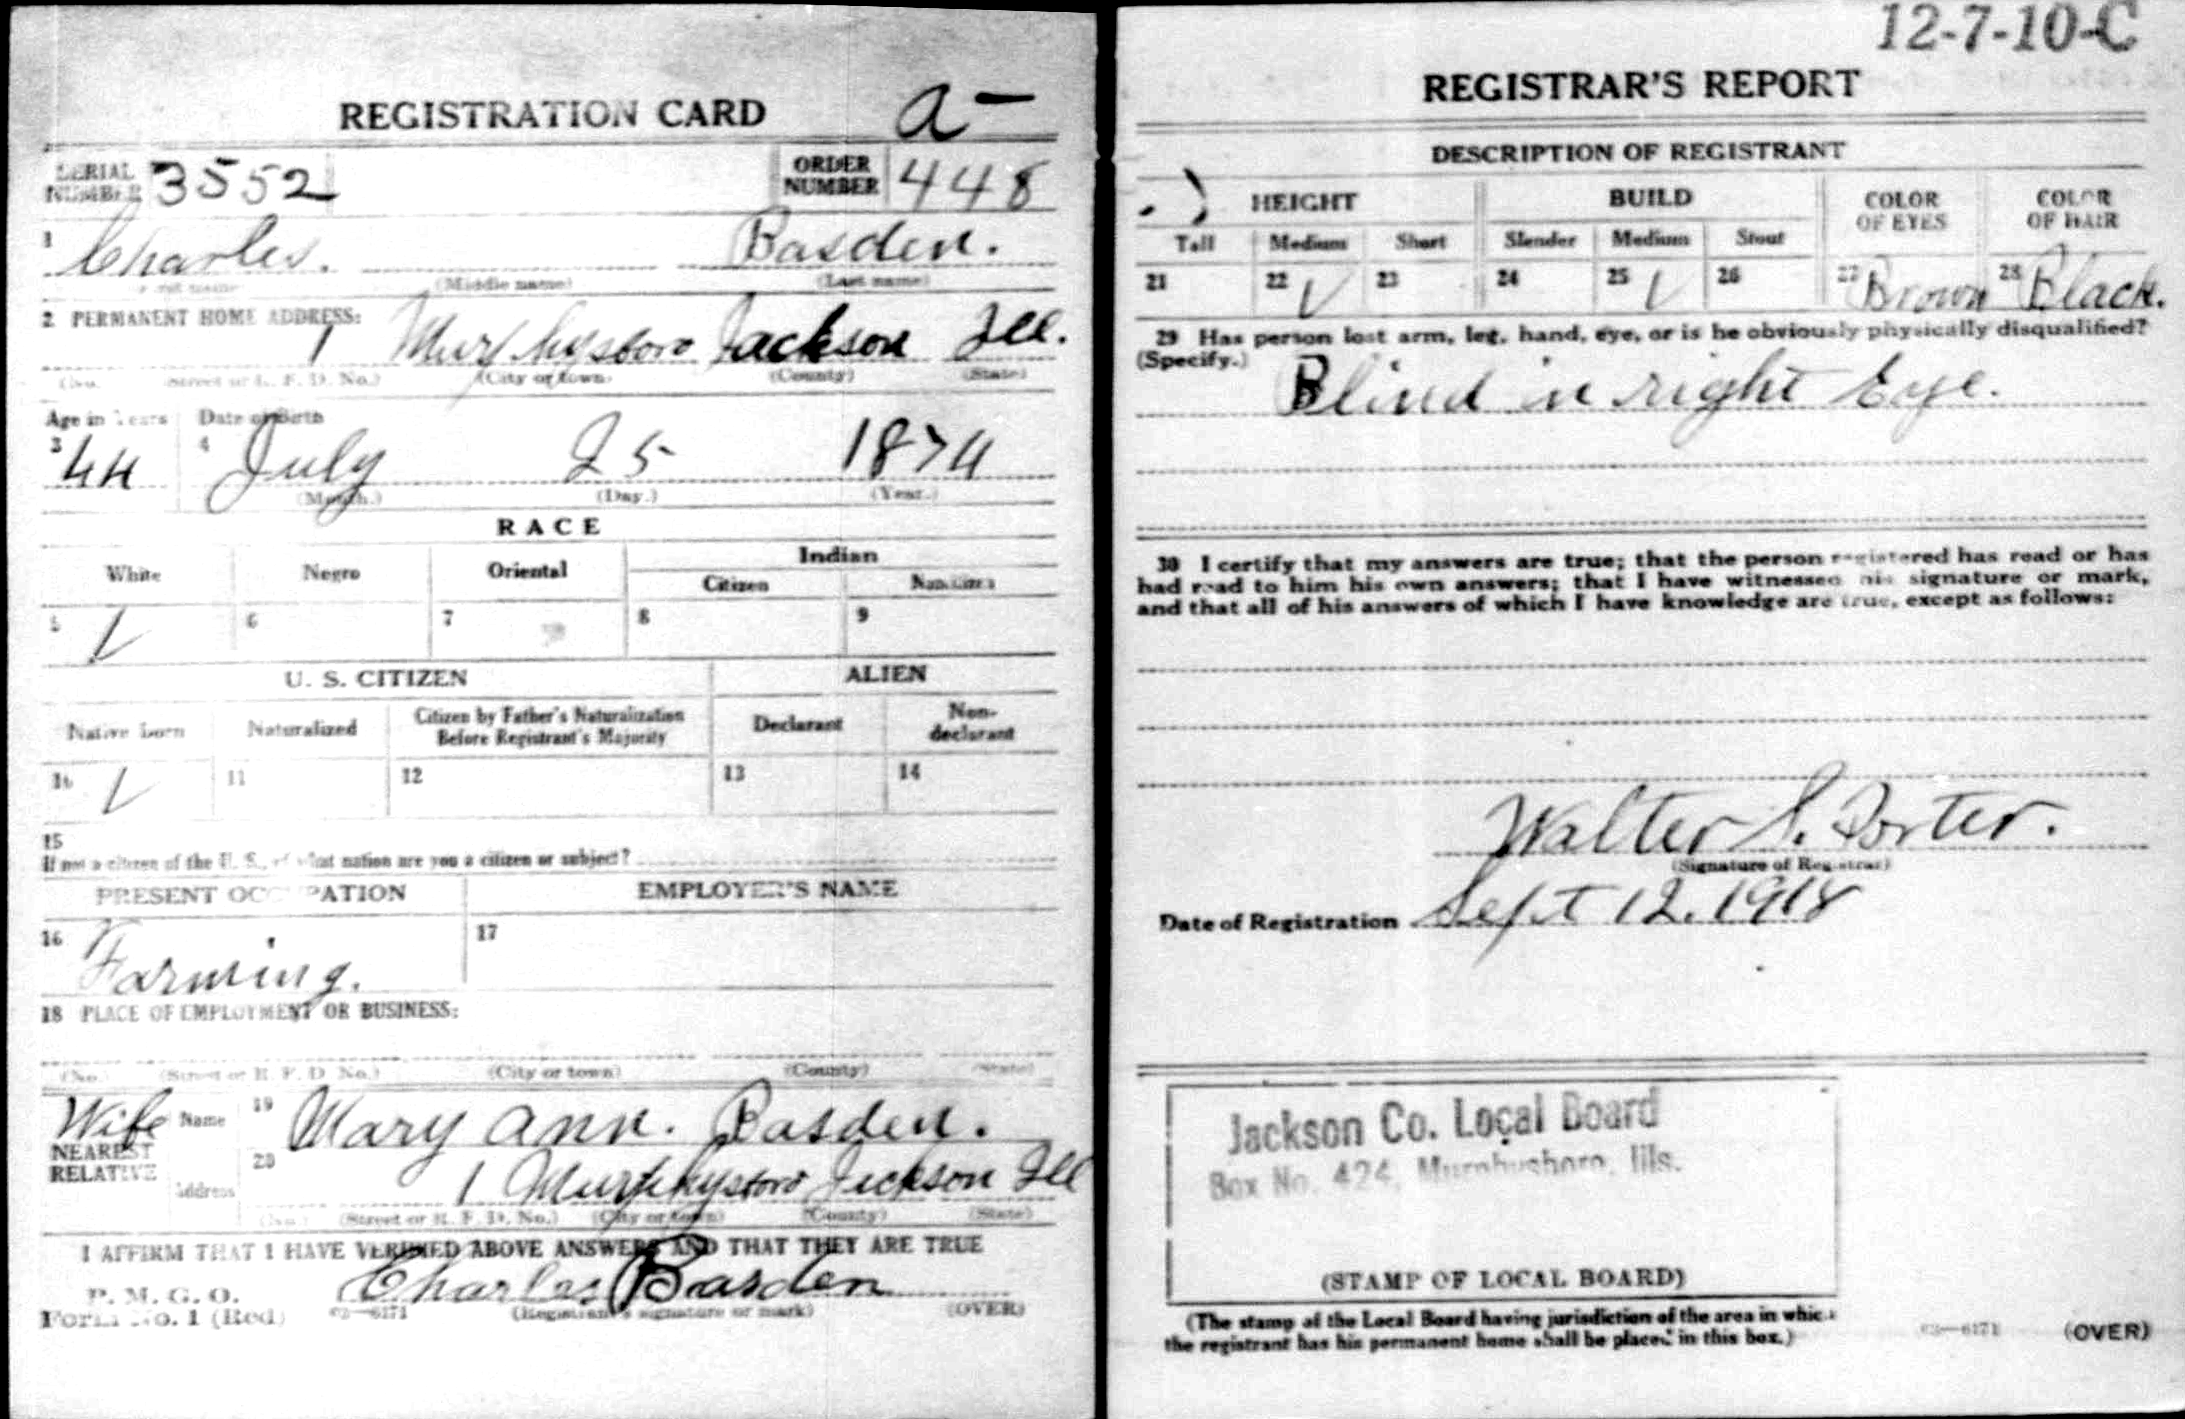 REGISTRATION CARD a-
SERIAL NUMBER 3552 ORDER NUMBER 448
1 Charles. Basden.
(First name) (Middle name) (Last name)
2 PERMANENT HOME ADDRESS:
1 Murphysboro Jackson Ill.
(No.) (Street or R. F. D. No.) (City or town) (County) (State)
Age in Years Date of Birth
3 44 4 July 25 1874
(Month.) (Day.) (Year.)
RACE
White Negro Oriental Indian
Citizen Noncitizen
5 V 6 7 8 9
U. S. CITIZEN ALIEN
Native born Naturalized Citizen by Father's Naturalization Before Registrant's Majority Declarant Non-declarant
10 V 11 12 13 14
15
If not a citizen of the U. S., of what nation are you a citizen or subject?
PRESENT OCCUPATION EMPLOYER'S NAME
16 Farming. 17
18 PLACE OF EMPLOYMENT OR BUSINESS:
(No.) (Street or R. F. D. No.) (City or town) (County) (State)
Wife Name 19 Mary Ann. Basden.
NEAREST RELATIVE
Address 20 1 Murphysboro Jackson Ill
(No.) (Street or R. F. D. No.) (City or town) (County) (State)
I AFFIRM THAT I HAVE VERIFIED ABOVE ANSWERS AND THAT THEY ARE TRUE
P. M. G. O.
Form No. 1 (Red) 03—6171 Charles Basden
(Registrant's signature or mark) (OVER)
12-7-10-C
REGISTRAR'S REPORT
DESCRIPTION OF REGISTRANT
HEIGHT BUILD COLOR OF EYES COLOR OF HAIR
Tall Medium Short Slender Medium Stout
21 22 V 23 24 25 V 26 27 Brown 28 Black.
29 Has person lost arm, leg, hand, eye, or is he obviously physically disqualified?
(Specify.) Blind in right Eye.
30 I certify that my answers are true; that the person registered has read or has
had read to him his own answers; that I have witnessed his signature or mark,
and that all of his answers of which I have knowledge are true, except as follows:
Walter S. Porter.
(Signature of Registrar)
Date of Registration Sept 12. 1918
Jackson Co. Local Board
Box No. 424, Murphysboro, Ills.
(STAMP OF LOCAL BOARD)
(The stamp of the Local Board having jurisdiction of the area in which
the registrant has his permanent home shall be placed in this box.)
03—6171 (OVER)